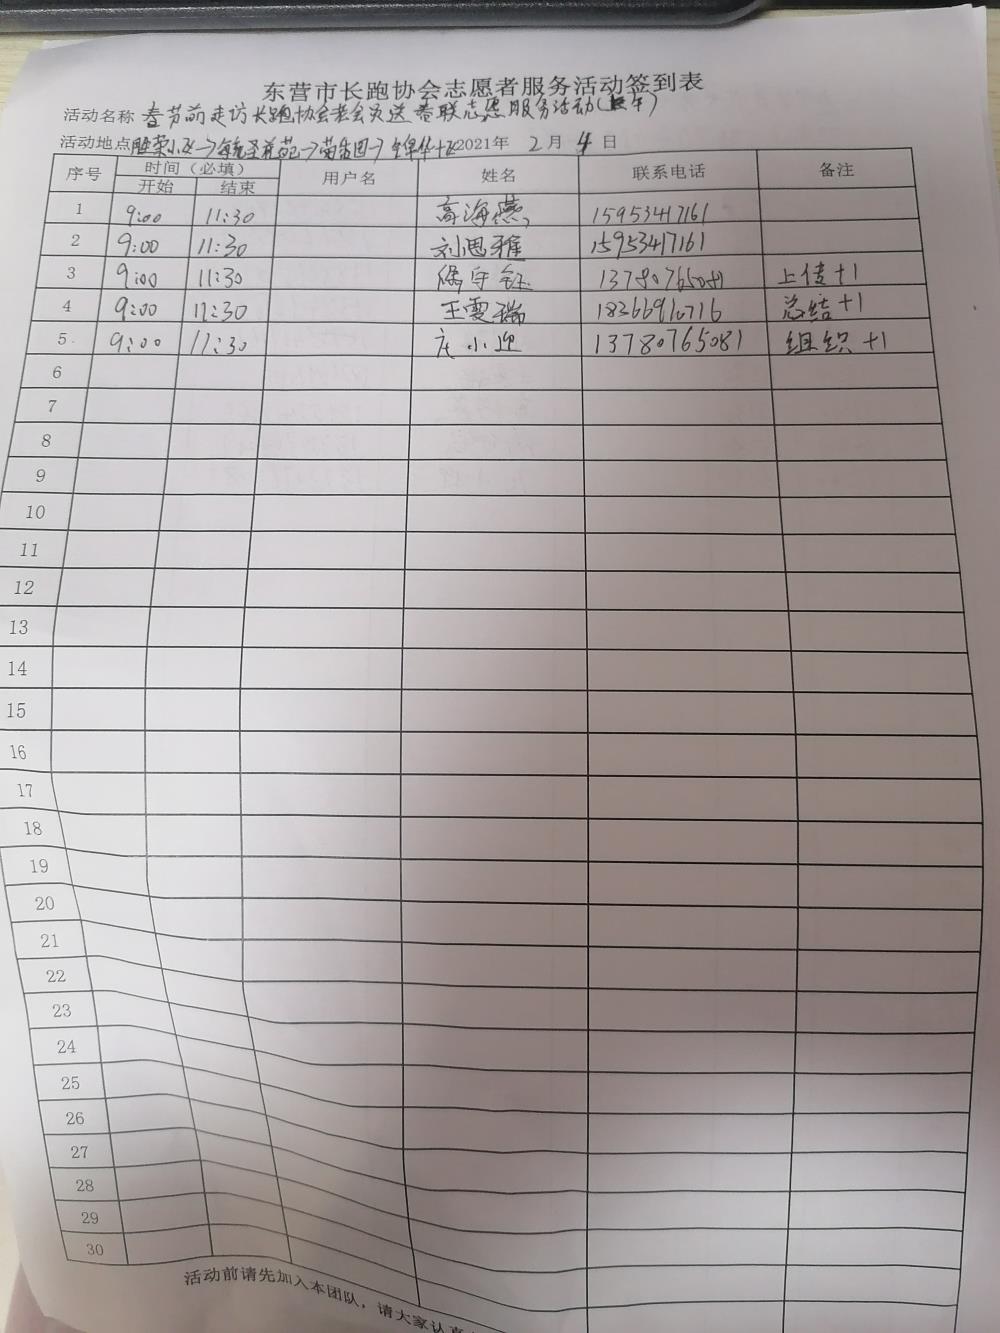 东营市长跑协会志愿者服务活动签到表
活动名称 春节前走访长跑协会老会员送春联志愿服务活动(上午)
活动地点 胜荣小区→ →锦华 2021年 2月 4日
序号 时间（必填） 用户名 姓名 联系电话 备注
开始 结束
1 9:00 11:30 高海燕 15953417161
2 9:00 11:30 刘思雅 15953417161
3 9:00 11:30 守钰 13780765081 上传+1
4 9:00 11:30 王雯瑞 18366910716 总结+1
5 9:00 11:30 庄小迎 13780765081 组织+1
6
7
8
9
10
11
12
13
14
15
16
17
18
19
20
21
22
23
24
25
26
27
28
29
30
活动前请先加入本团队，请大家认真